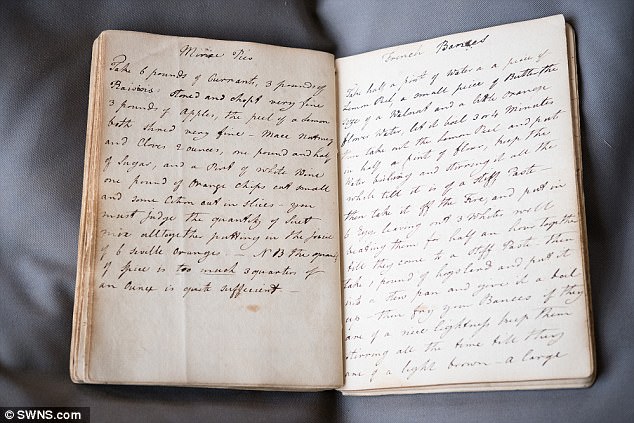 Mince Pies
Take 6 pounds of Currants, 3 pounds of
Raisons stoned and chopt very fine
3 pounds of Apples, the peel of a lemon
both shred very fine – Mace Nutmeg
and Cloves 2 ounces, one pound and half
of Sugar, and a Pint of white Wine
one pound of Orange Chips cut small
and some Citron cut in slices – you
must judge the quantity of Suet
mix alltogether putting in the juice
of 6 seville oranges. – N B the quantity
of spice is too much 3 quarters of
an Ounce is quite sufficient –
French Bances
Take half a pint of Water a a piece of
Lemon Peel, a small piece of Butter the
size of a Walnut and a little orange
flower Water, let it boil 3 or 4 Minutes
then take out the Lemon Peel and put
in half a pint of flour, keep the
Water boiling and stirring it all the
while till it is of a stiff Paste
then take it off the Fire, and put in
Eggs leaving out 3 Whites well
beating them for half an hour together
till they come to a stiff Paste then
take 1 pound of hogs lard and put it
into a stew pan and give it a boil
up – then fry your Bances if they
are of a nice lightness keep them
stirring all the time till they
are of a light brown – a large
© SWNS.com